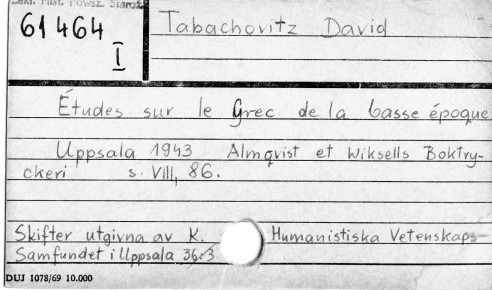 Zakł. Hist. Powsz. Staroż.
61 464
I
Tabachovitz David
Études sur le Grec de la basse époque
Uppsala 1943 Almqvist et Wiksells Boktry-
ckeri s. VIII, 86.
Skifter utgivna av K. Humanistiska Vetenskaps-
Samfundet i Uppsala 36:3
DUJ 1078/69 10.000